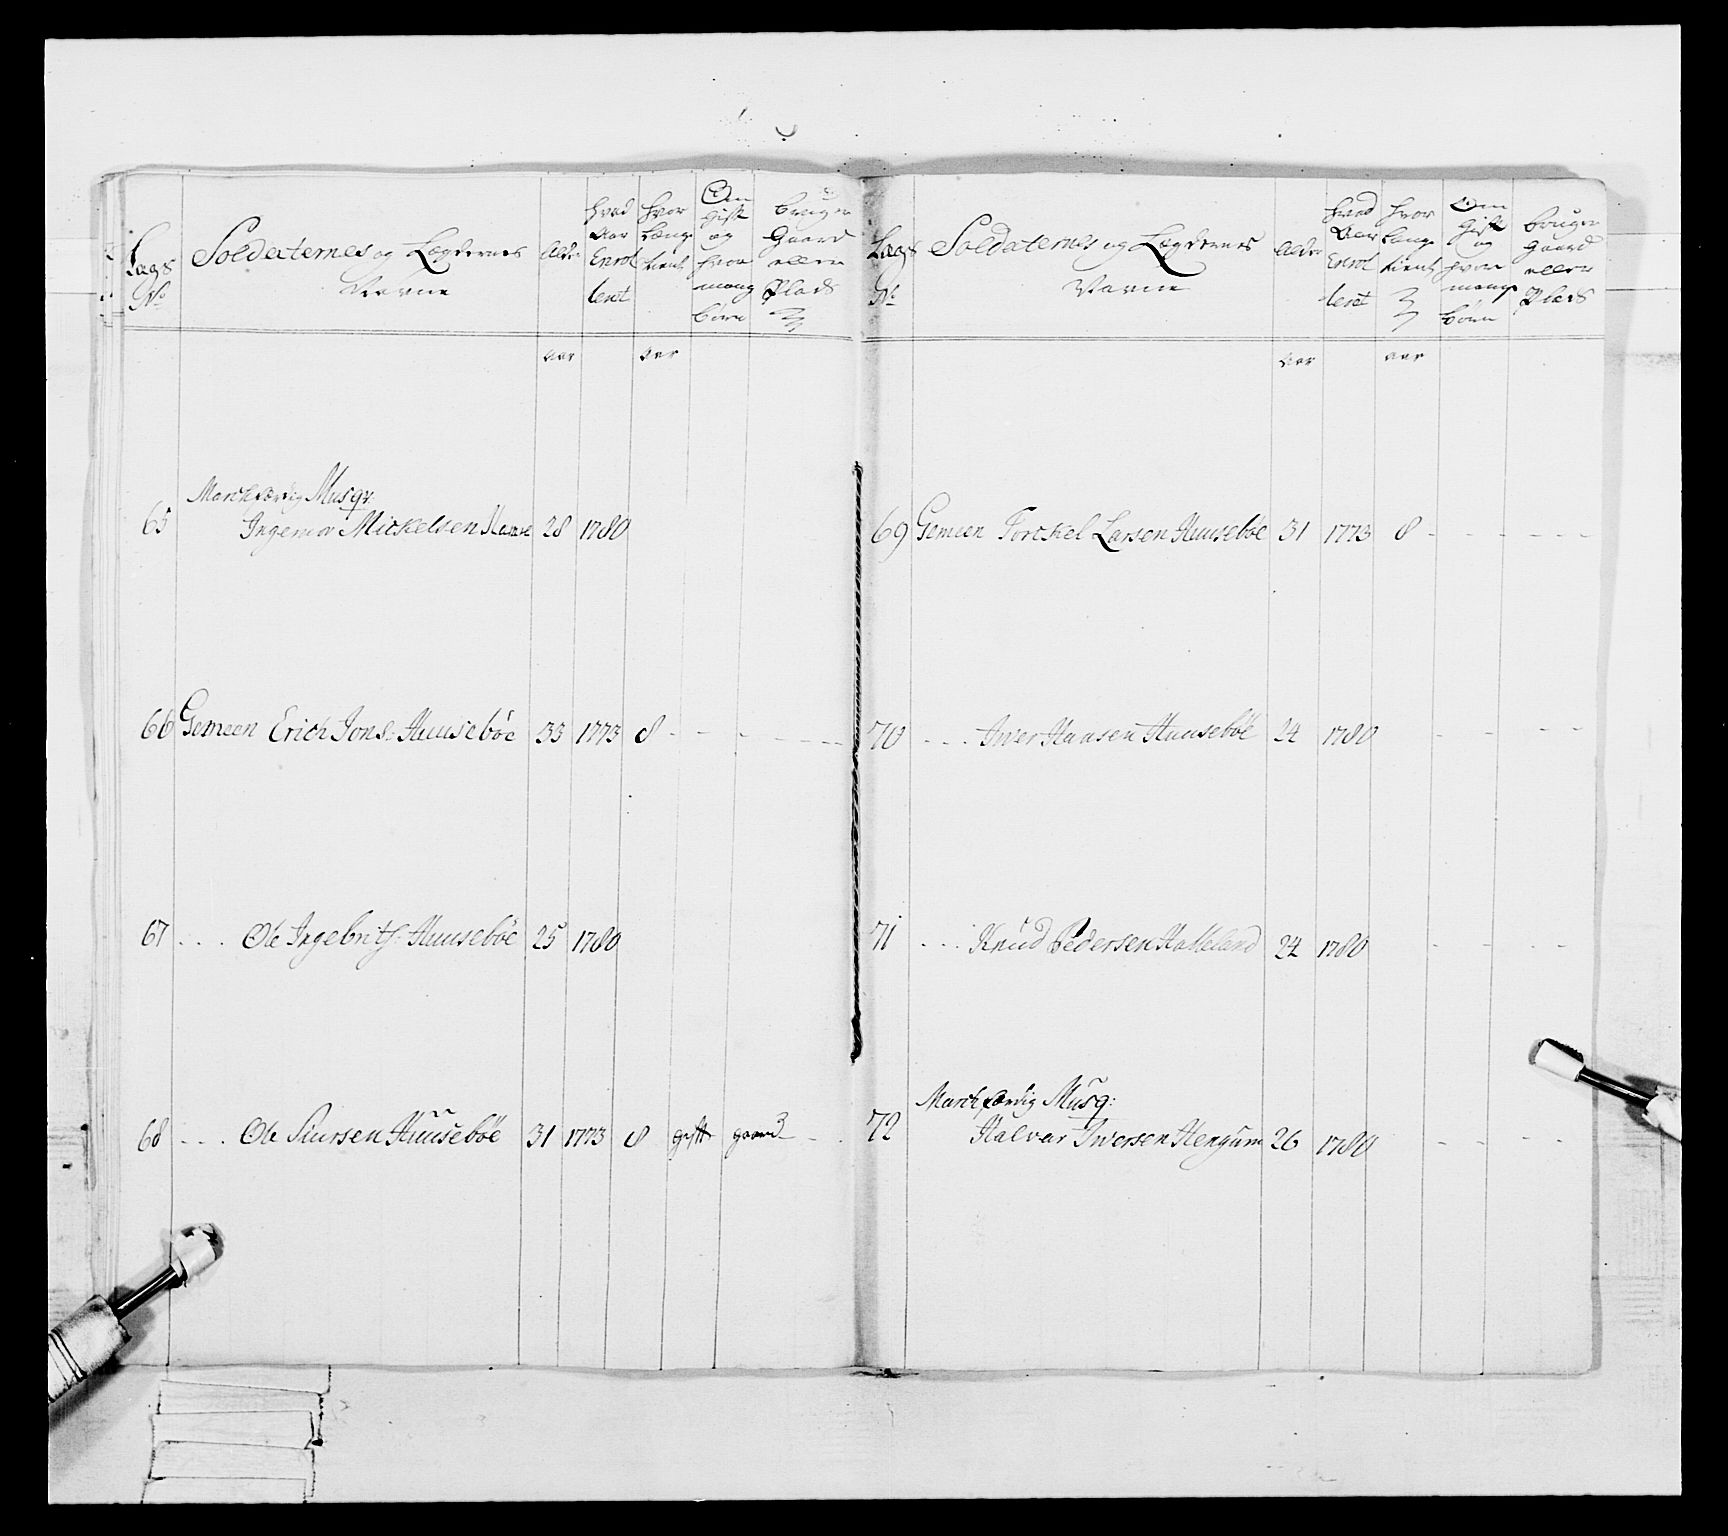 Lags No
Soldaternes og Lægdernes Navne
Alder
hvad Aar Enrolleret
hvor Længe tient
Om gift og hvor mang børn
bruger Gaard eller Plads
aar aar
65 Marchfærdig Musqr:
Ingemar Mickelsen 28 1780
66 Gemeen Erich Jons: Huusebøe 33 1773 8 - - - - -
67 . . . Ole Ingebrits: Huusebøe 25 1780
68 - . . . Ole Siursen Huusebøe 31 1773 8 gift gaard - .
Lags No
Soldaternes og Lægdernes Navne
Alder
hvad Aar Enrolleret
hvor Længe tient
Om gift og hvor mange børn
bruger Gaard eller Plads
aar aar
69 Gemeen Torckel Larsen Huusebøe 31 1773 8 - - - - - -
70 . . . . Iwer Hansen Huusebøe 24 1780 - - - -
71 . . . . Knud Pedersen Halleland 24 1780 - - - -
72 Marchfærdig Musq:
Halvar Iwersen Hengum 26 1780 - - - -